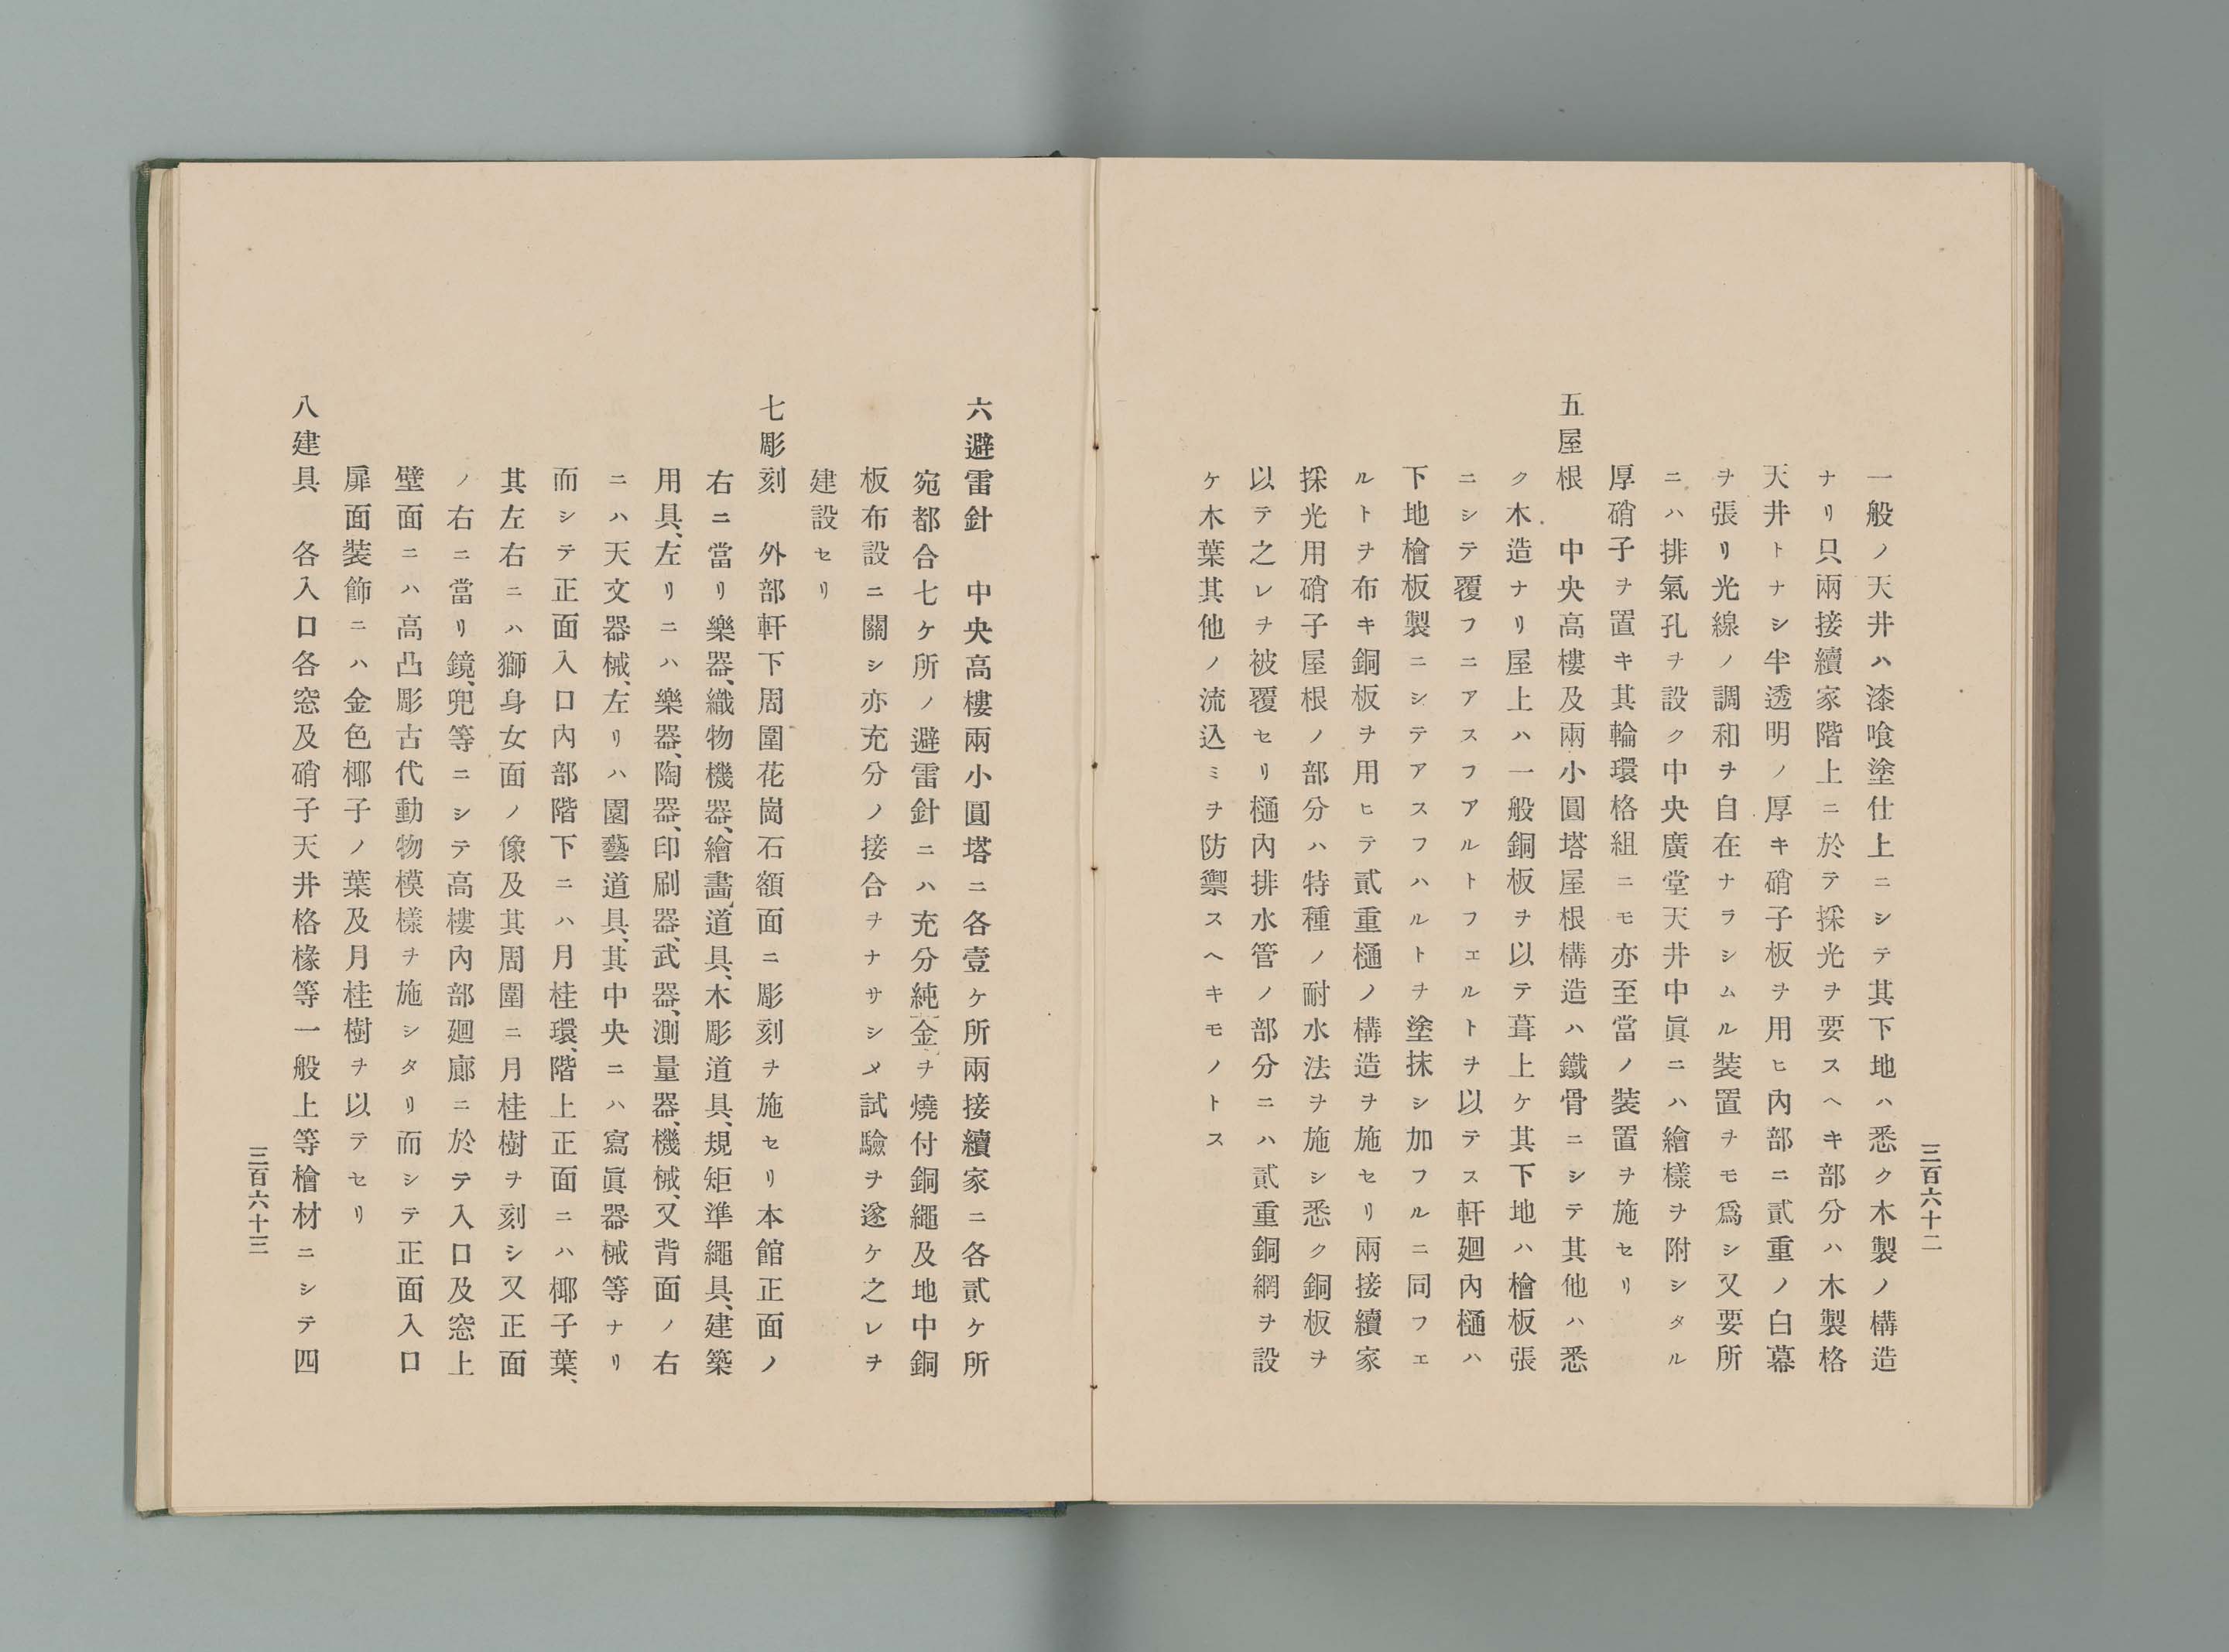 三百六十二
一般ノ天井ハ漆喰塗仕上ニシテ其下地ハ悉ク木製ノ構造
ナリ只兩接續家階上ニ於テ採光ヲ要スヘキ部分ハ木製格
天井トナシ半透明ノ厚キ硝子板ヲ用ヒ內部ニ貳重ノ白幕
ヲ張リ光線ノ調和ヲ自在ナラシムル裝置ヲモ爲シ又要所
ニハ排氣孔ヲ設ク中央廣堂天井中眞ニハ繪樣ヲ附シタル
厚硝子ヲ置キ其輪環格組ニモ亦至當ノ裝置ヲ施セリ
五屋根　中央高樓及兩小圓塔屋根構造ハ鐵骨ニシテ其他ハ悉
ク木造ナリ屋上ハ一般銅板ヲ以テ葺上ケ其下地ハ檜板張
ニシテ覆フニアスフアルトフエルトヲ以テス軒廻內樋ハ
下地檜板製ニシテアスフハルトヲ塗抹シ加フルニ同フエ
ルトヲ布キ銅板ヲ用ヒテ貳重樋ノ構造ヲ施セリ兩接續家
採光用硝子屋根ノ部分ハ特種ノ耐水法ヲ施シ悉ク銅板ヲ
以テ之レヲ被覆セリ樋內排水管ノ部分ニハ貳重銅網ヲ設
ケ木葉其他ノ流込ミヲ防禦スヘキモノトス
六避雷針　中央高樓兩小圓塔ニ各壹ケ所兩接續家ニ各貳ケ所
宛都合七ケ所ノ避雷針ニハ充分純金ヲ燒付銅繩及地中銅
板布設ニ關シ亦充分ノ接合ヲナサシメ試驗ヲ遂ケ之レヲ
建設セリ
七彫刻　外部軒下周圍花崗石額面ニ彫刻ヲ施セリ本館正面ノ
右ニ當リ樂器、織物機器、繪畵道具、木彫道具、規矩準繩具、建築
用具、左リニハ樂器、陶器、印刷器、武器、測量器、機械、又背面ノ右
ニハ天文器械、左リハ園藝道具、其中央ニハ寫眞器械等ナリ
而シテ正面入口內部階下ニハ月桂環、階上正面ニハ椰子葉、
其左右ニハ獅身女面ノ像及其周圍ニ月桂樹ヲ刻シ又正面
ノ右ニ當リ鏡、兜等ニシテ高樓內部廻廊ニ於テ入口及窓上
壁面ニハ高凸彫古代動物模樣ヲ施シタリ而シテ正面入口
扉面裝飾ニハ金色椰子ノ葉及月桂樹ヲ以テセリ
八建具　各入口各窓及硝子天井格椽等一般上等檜材ニシテ四
三百六十三